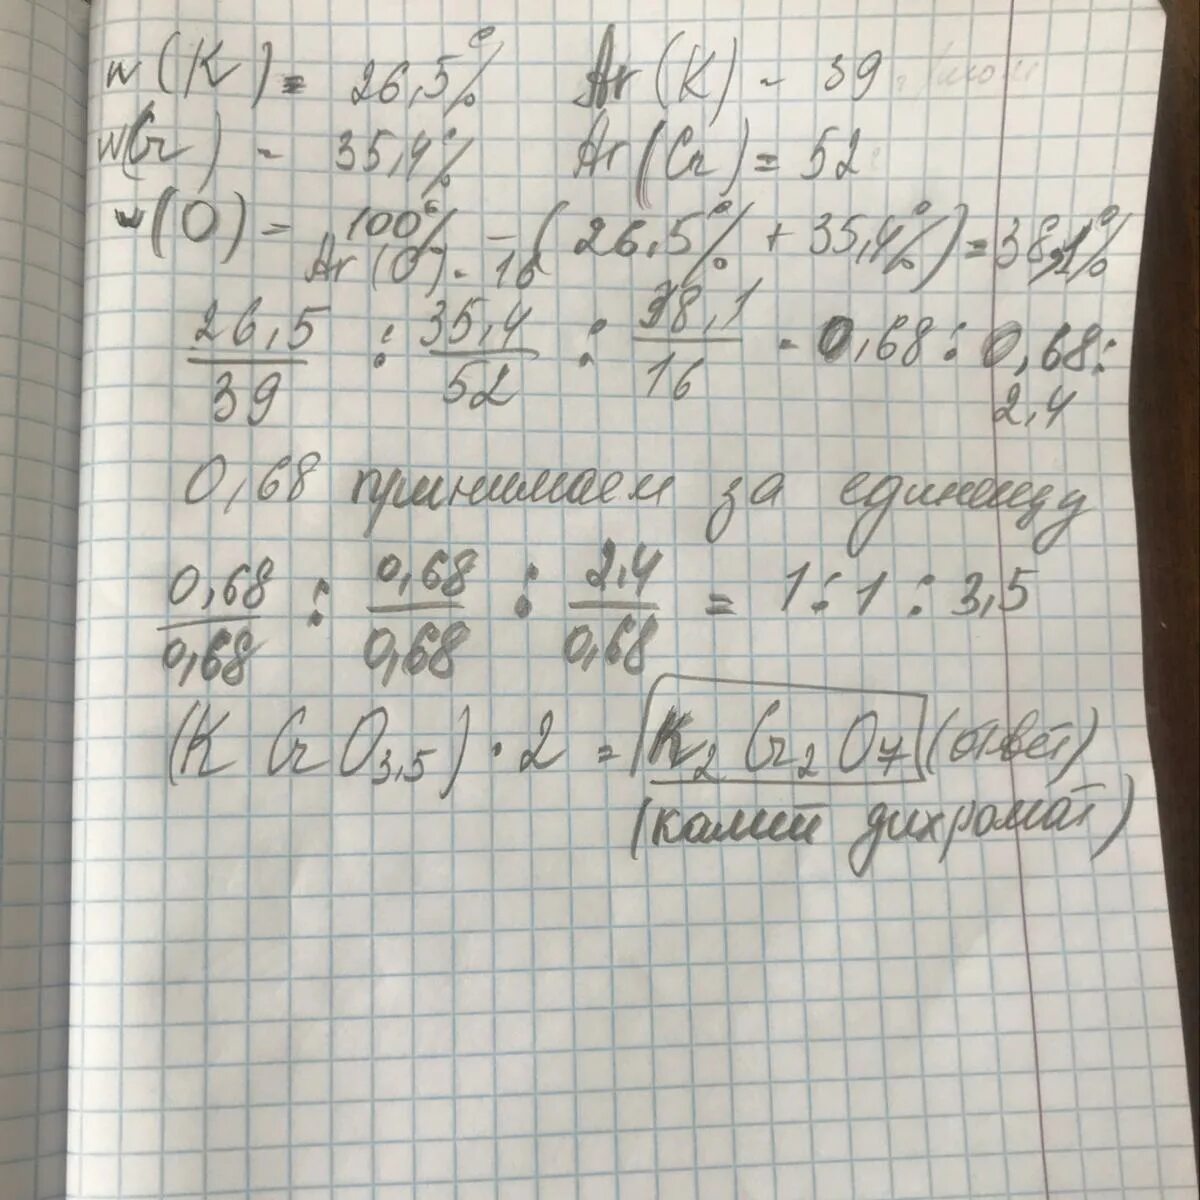 w(K) = 26,5% Ar(K) - 39
w(Cr) - 35,4% Ar(Cr) = 52
w(O) = 100% - (26,5% + 35,4%) = 38,1%
Ar(O) - 16
26,5/39 : 35,4/52 : 38,1/16 - 0,68 : 0,68 :
2,4
0,68 принимаем за единицу
0,68/0,68 : 0,68/0,68 : 2,4/0,68 = 1 : 1 : 3,5
(K Cr O3,5) · 2 = K2 Cr2 O7 (ответ)
(калий дихромат)